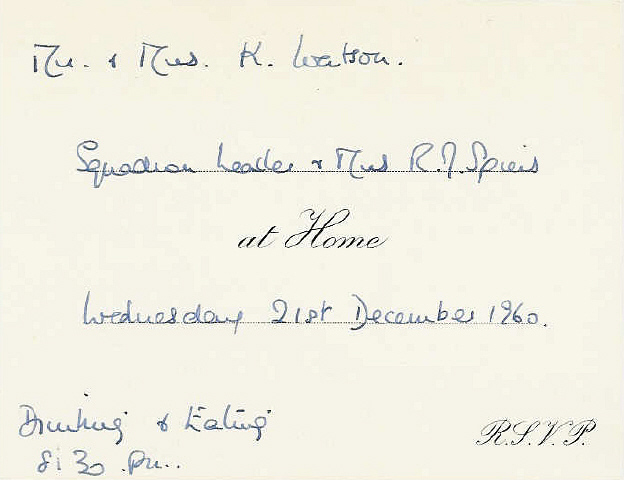 Mr. & Mrs. K. Watson.
Squadron Leader & Mrs R.J. Spiers
at Home
Wednesday 21st December 1960.
Drinking & Eating
8.30 pm..
R.S.V.P.